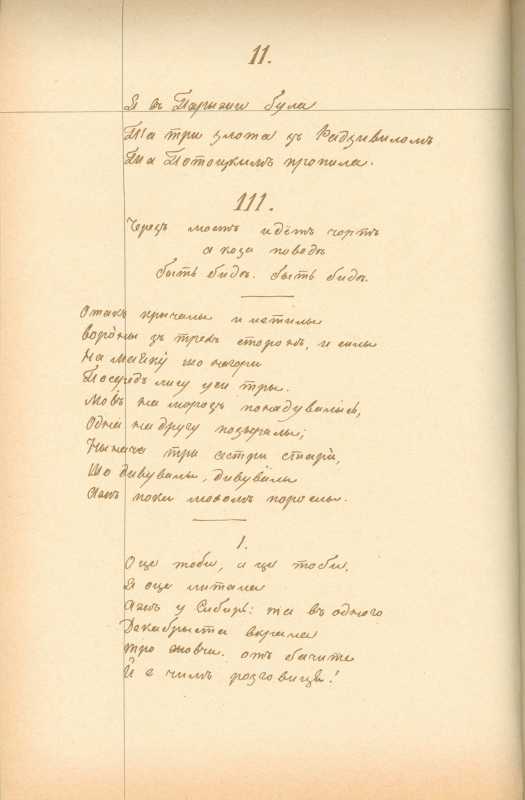 11.
Я въ Парыжи була
Та три злота зъ Радзивиломъ
Та Потоцкимъ пропила.
111.
Черезъ мостъ идётъ чортъ
а коза поводѣ
быть бидѣ. быть бидѣ.
Отакъ крычалы и летилы
воро́ны зъ трехъ сторонъ, и силы
На маяку́ що на гори
Посередъ лису уси тры.
Мовъ на морозъ понадувались,
Одна на другу позыралы;
Ныначе три сестри стари́,
Що дивувалы, дивувалы
Ажъ поки мохомъ поросли.
1.
Оце тоби, а це тоби.
Я оце литала
Ажъ у Сибирь: та въ одного
Декабрыста вкрала
тро жовчи. отъ бачите
Й е чимъ розговиця!